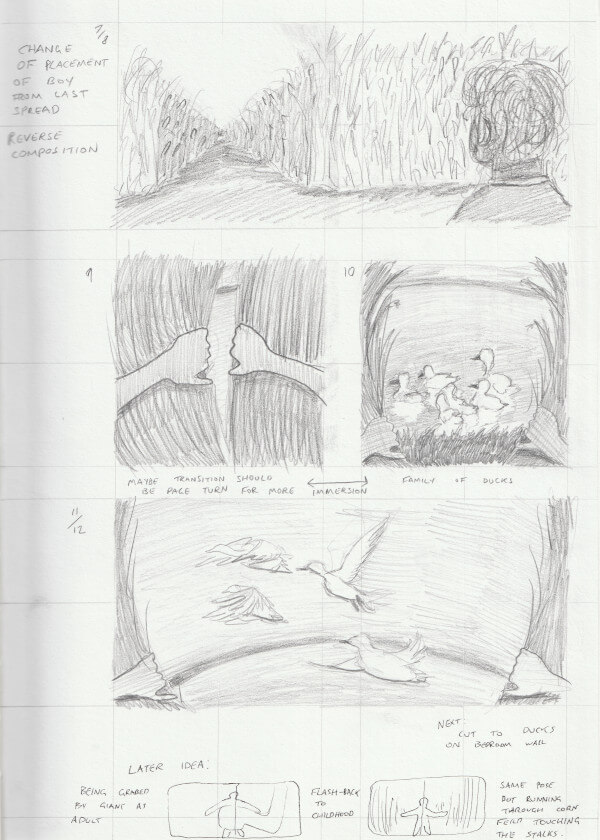 7/8
CHANGE
OF PLACEMENT
OF BOY
FROM LAST
SPREAD
REVERSE
COMPOSITION
9
10
MAYBE TRANSITION SHOULD
BE PAGE TURN FOR MORE IMMERSION
FAMILY OF DUCKS
11/12
NEXT:
CUT TO DUCKS
ON BEDROOM WALL
LATER IDEA:
BEING GRABED
BY GIANT AS
ADULT
FLASH-BACK
TO
CHILDHOOD
SAME POSE
BUT RUNNING
THROUGH CORN
FEILD TOUCHING
THE STACKS.